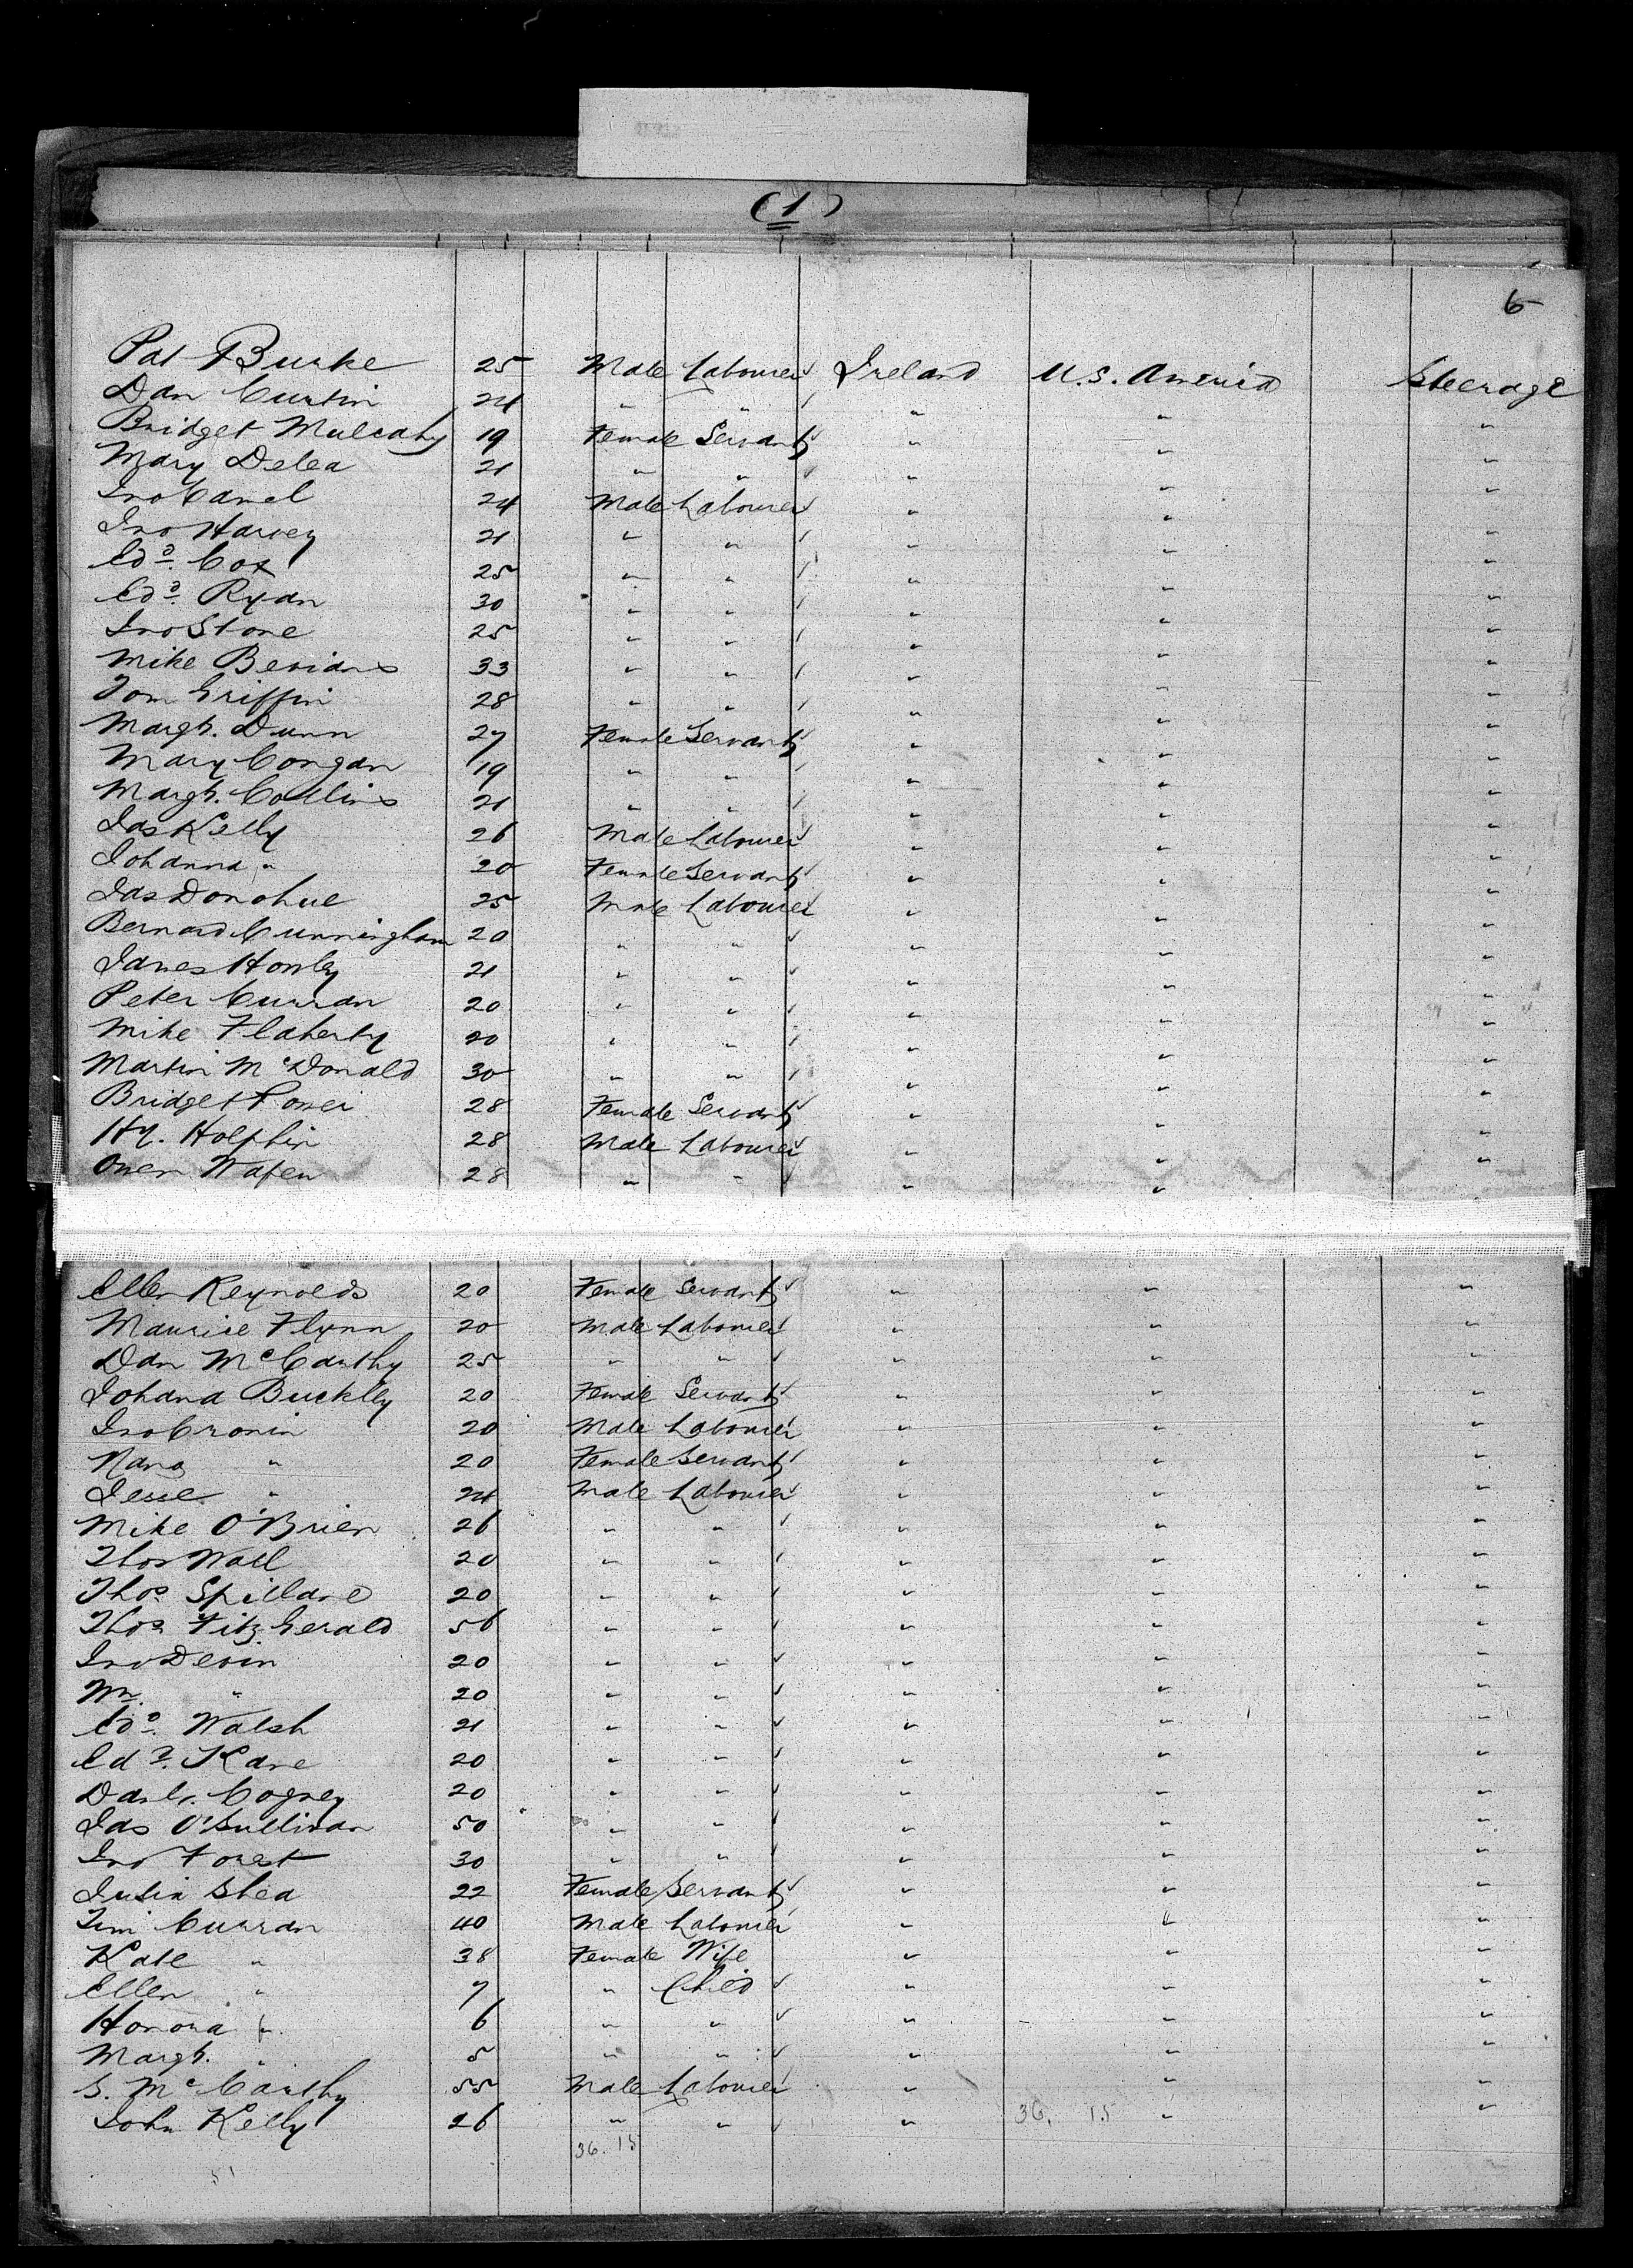 (1)
6
Pat Burke 25 Male Labourer Ireland U.S. America Steerage
Dan Curtin 24 " " " " "
Bridget Mulcahy 19 Female Servant " " "
Mary Delea 21 " " " " "
Jno Camel 24 Male Labourer " " "
Jno Harvey 21 " " " " "
Edd. Cox 25 " " " " "
Edd. Ryan 30 " " " " "
Jno Stone 25 " " " " "
Mike 33 " " " " "
Tom Griffin 28 " " " " "
Margt. Dunn 27 Female Servant " " "
Mary Congan 19 " " " " "
Margt. Collins 21 " " " " "
Jas Kelly 26 Male Labourer " " "
Johanna " 20 Female Servant " " "
Jas Donohue 25 Male Labourer " " "
Bernard Cunningham 20 " " " " "
James Honley 21 " " " " "
Peter Curran 20 " " " " "
Mike Flaherty 20 " " " " "
Martin McDonald 30 " " " " "
Bridget Power 28 Female Servant " " "
Hy. Holphin 28 Male Labourer " " "
Owen 28 " " " " "
Ellen Reynolds 20 Female Servant " " "
Maurice Flynn 20 Male Labourer " " "
Dan McCarthy 25 " " " " "
Johana Buckley 20 Female Servant " " "
Jno Cronin 20 Male Labourer " " "
" 20 Female Servant " " "
Jesse " 24 Male Labourer " " "
Mike O'Brien 26 " " " " "
Thos Wall 20 " " " " "
Thos Spillane 20 " " " " "
Thos FitzGerald 56 " " " " "
Jno Devin 20 " " " " "
Wm. " 20 " " " " "
Edd. Walsh 21 " " " " "
Edd. Kane 20 " " " " "
Danl. Cogney 20 " " " " "
Jas O'Sullivan 50 " " " " "
Jno Forest 30 " " " " "
Julia Shea 22 Female Servant " " "
Tim Curran 40 Male Labourer " " "
Kate " 38 Female Wife " " "
Ellen " 7 " Child " " "
Honora " 6 " " " " "
Margt. " 5 " " " " "
S. McCarthy 55 Male Labourer " " "
John Kelly 26 " " " 36. 15 " "
36. 15
51